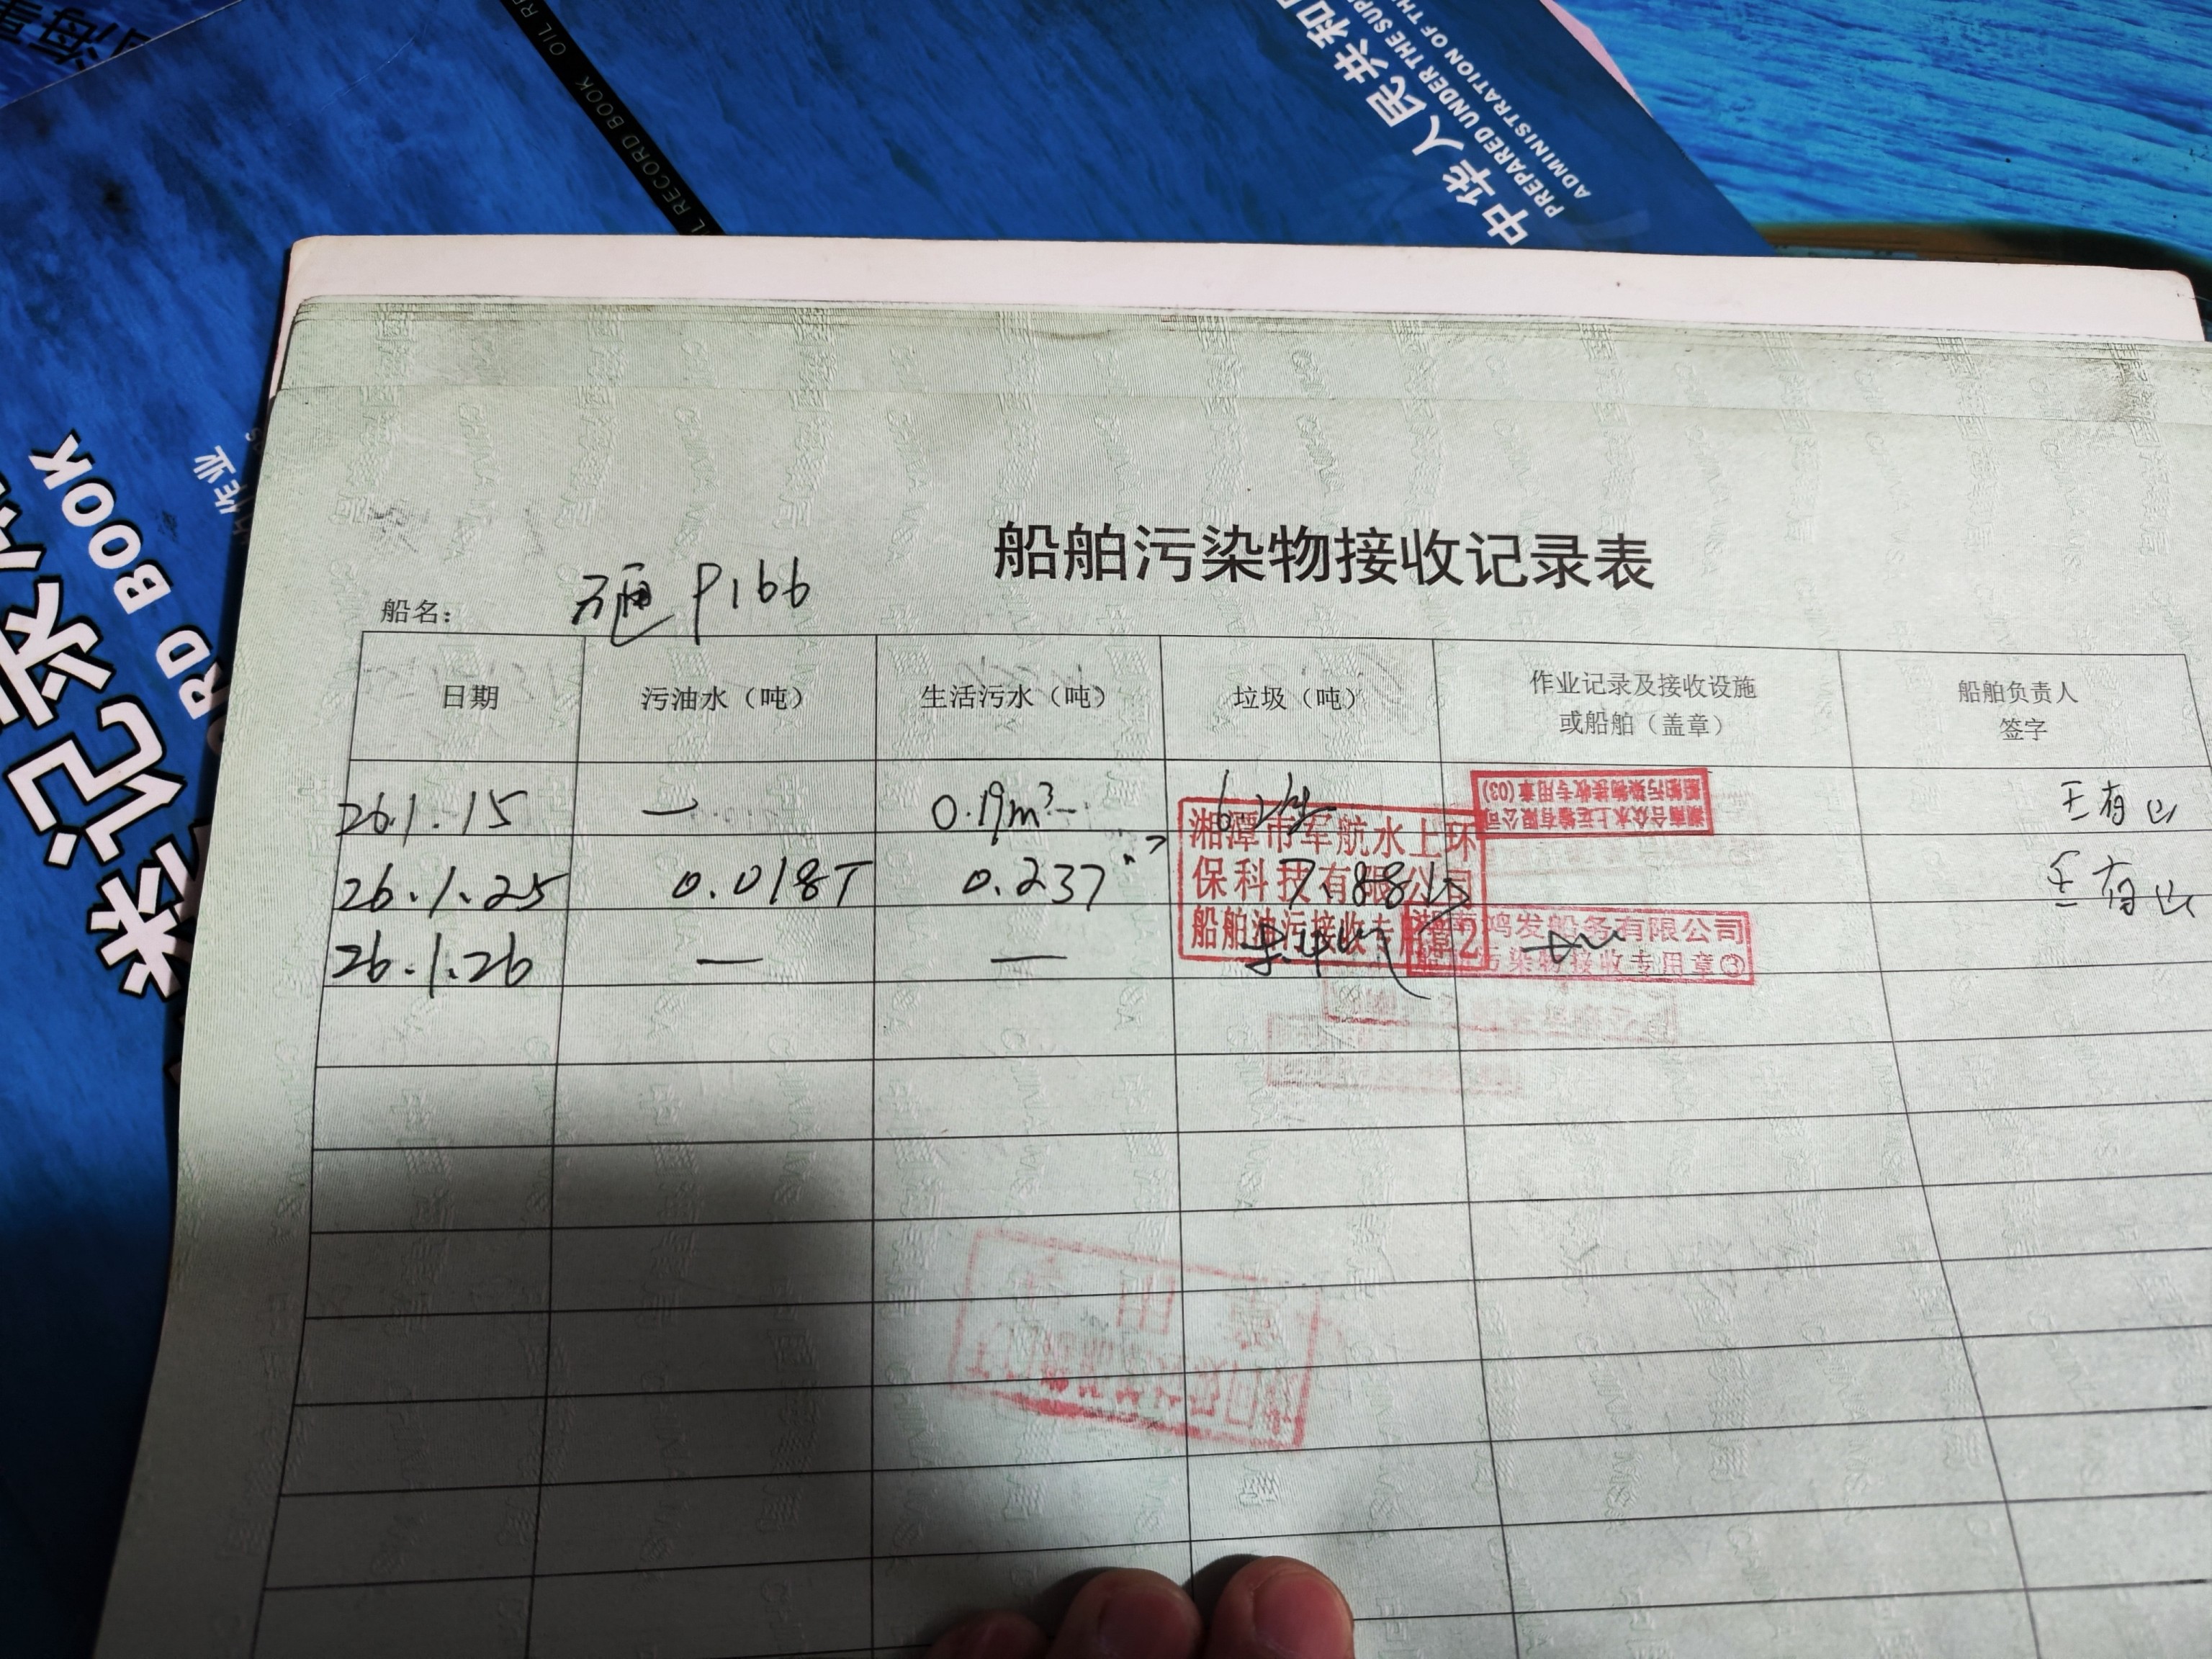 OIL RECORD BOOK
中华人民共和
PREPARED UNDER THE SUP
ADMINISTRATION OF TH
记录
RD BOOK
作业
船舶污染物接收记录表
船名： P166
日期 污油水（吨） 生活污水（吨） 垃圾（吨） 作业记录及接收设施 或船舶（盖章） 船舶负责人 签字
26.1.15 — 0.19m³ 王有山
湖南合众水上运输有限公司
船舶污染物接收专用章(03)
26.1.25 0.018T 0.237 7.88 王有山
湘潭市军航水上环
保科技有限公司
船舶油污接收专用章2
26.1.26 — —
湖南鸿发船务有限公司
污染物接收专用章③